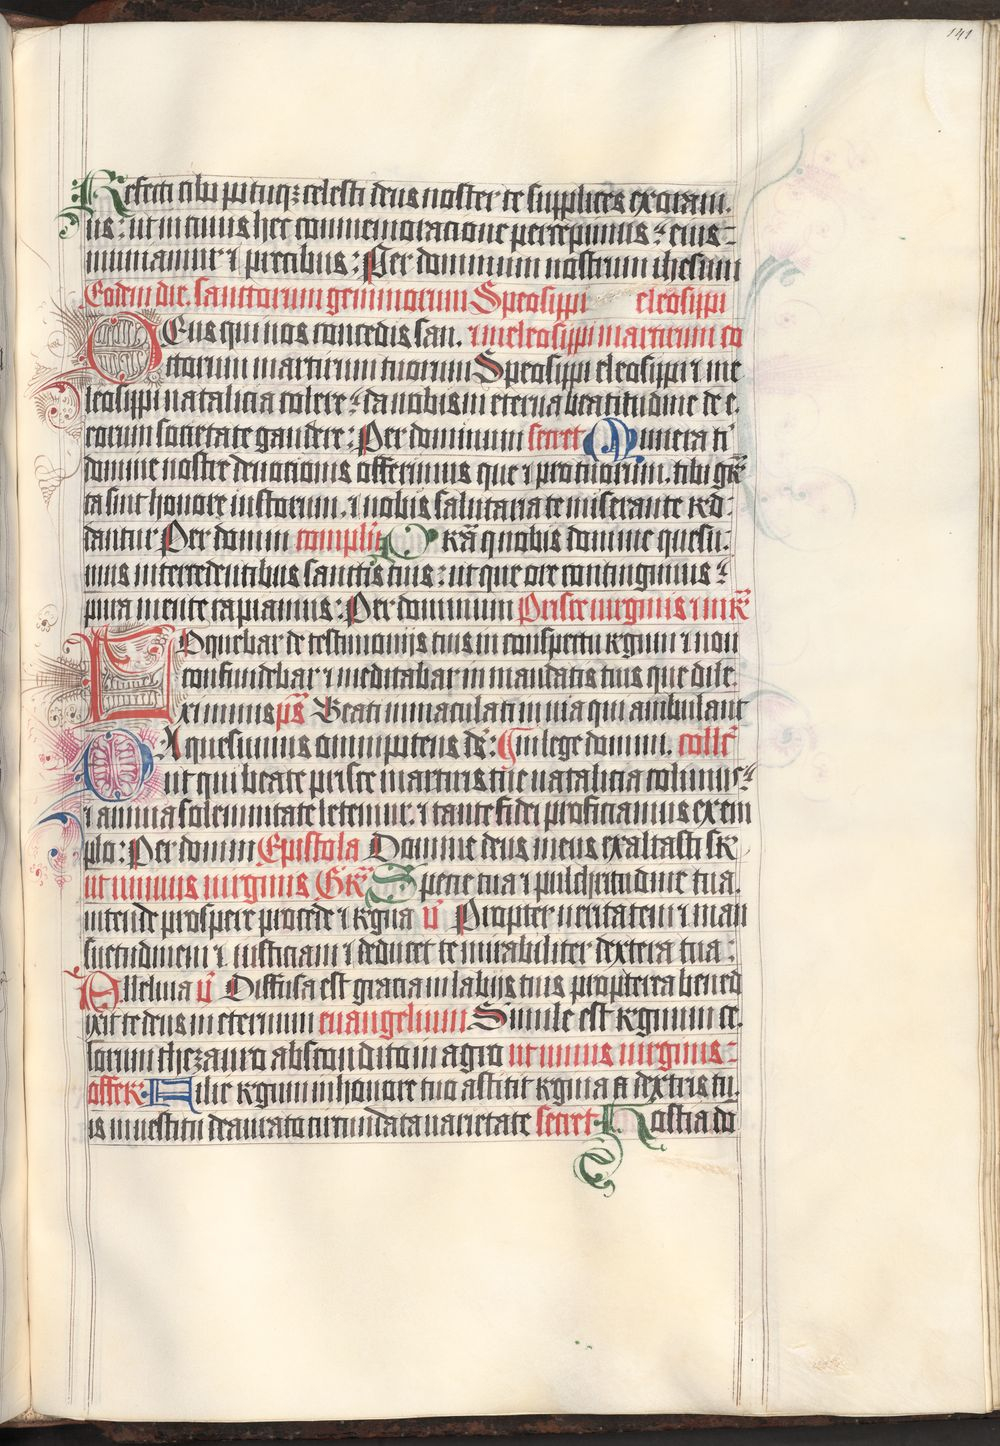 141
Refecti cibu putuqz celesti deus noster te supplices exoram.
us: ut in cuius hec commemoracione percepimus: eius
muniamur et precibus: Per dominum nostrum ihesum
Eodem die. sanctorum geminorum Speosippi eleosippi
Deus qui nos concedis san. et meleosippi martirum co
ctorum martirum tuorum Speosippi eleosippi et me
leosippi natalicia colere: da nobis in eterna beatitudine de e.
eorum societate gaudere: Per dominum secret Munera ti
domine nostre devocionis offerimus que et pro tuorum. tibi gra
ta sint honore iustorum. et nobis salutaria te miserante red
dantur Per domin complet Presta nobis domine quesu
mus intercedentibus sanctis tuis: ut que ore contingimus
pura mente capiamus: Per dominum Prisce virginis et mr
Loquebar de testimonijs tuis in conspectu regum et non
confundebar et meditabar in mandatis tuis que dile.
xi nimis ps Beati immaculati in via qui ambulant
Da quesumus omnipotens ds: in lege domini. collect
ut qui beate prisce martiris tue natalicia colimus
et annua solemnitate letemur. et tante fidei proficiamus exem
plo: Per domin Epistola Domine deus meus exaltasti sr
ut unius virginis Gr Specie tua et pulchritudine tua.
intende prospere procede et regna v Propter veritatem et man
suetudinem et iusticiam et deducet te mirabiliter dextera tua:
Alleluia v Diffusa est gracia in labijs tuis propterea bened
ixit te deus in eternum euangelium Simile est regnum ce.
lorum thezauro abscondito in agro ut unius virginis
offer Filie regum in honore tuo astitit regina a dextris tu.
is in vestitu deaurato circumdata varietate secret Hostia do